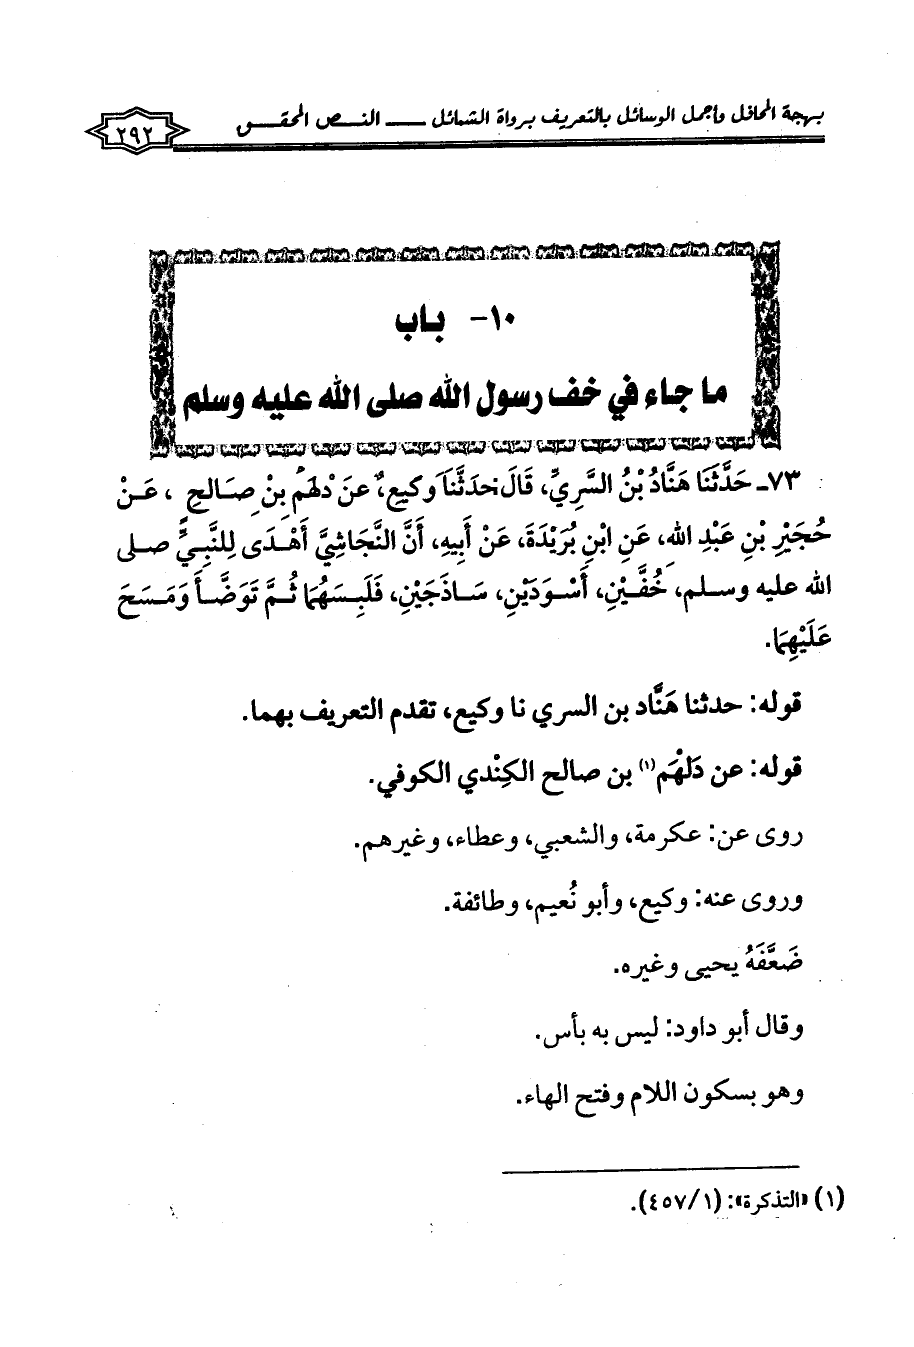 بهجة المحافل وأجمل الوسائل بالتعريف برواة الشمائل ــــ النـــص المحقـــق
٢٩٢
١٠- باب
ما جاء في خف رسول الله صلى الله عليه وسلم
٧٣ـ حَدَّثَنَا هَنَّادُ بْنُ السَّرِيِّ، قَالَ حَدَّثَنَا وَكِيع، عَنْ دَلْهَمِ بْنِ صَالِحٍ ، عَـنْ
حُجَيْرِ بْنِ عَبْدِ الله، عَنِ ابْنِ بُرَيْدَةَ، عَنْ أَبِيهِ، أَنَّ النَّجَاشِيَّ أَهْـدَى لِلنَّبِيِّ صلى
الله عليه وسلم، خُفَّـيْنِ، أَسْـوَدَيْنِ، سَـاذَجَيْنِ، فَلَبِسَـهُمَا ثُـمَّ تَوَضَّـأَ وَمَـسَحَ
عَلَيْهِمَا.
قوله: حدثنا هَنَّاد بن السري نا وكيع، تقدم التعريف بهما.
قوله: عن دَلْهَم(١) بن صالح الكِنْدي الكوفي.
روى عن: عكرمة، والشعبي، وعطاء، وغيرهم.
وروى عنه: وكيع، وأبو نُعيم، وطائفة.
ضَعَّفَهُ يحيى وغيره.
وقال أبو داود: ليس به بأس.
وهو بسكون اللام وفتح الهاء.
(١) «التذكرة»: (١/ ٤٥٧).